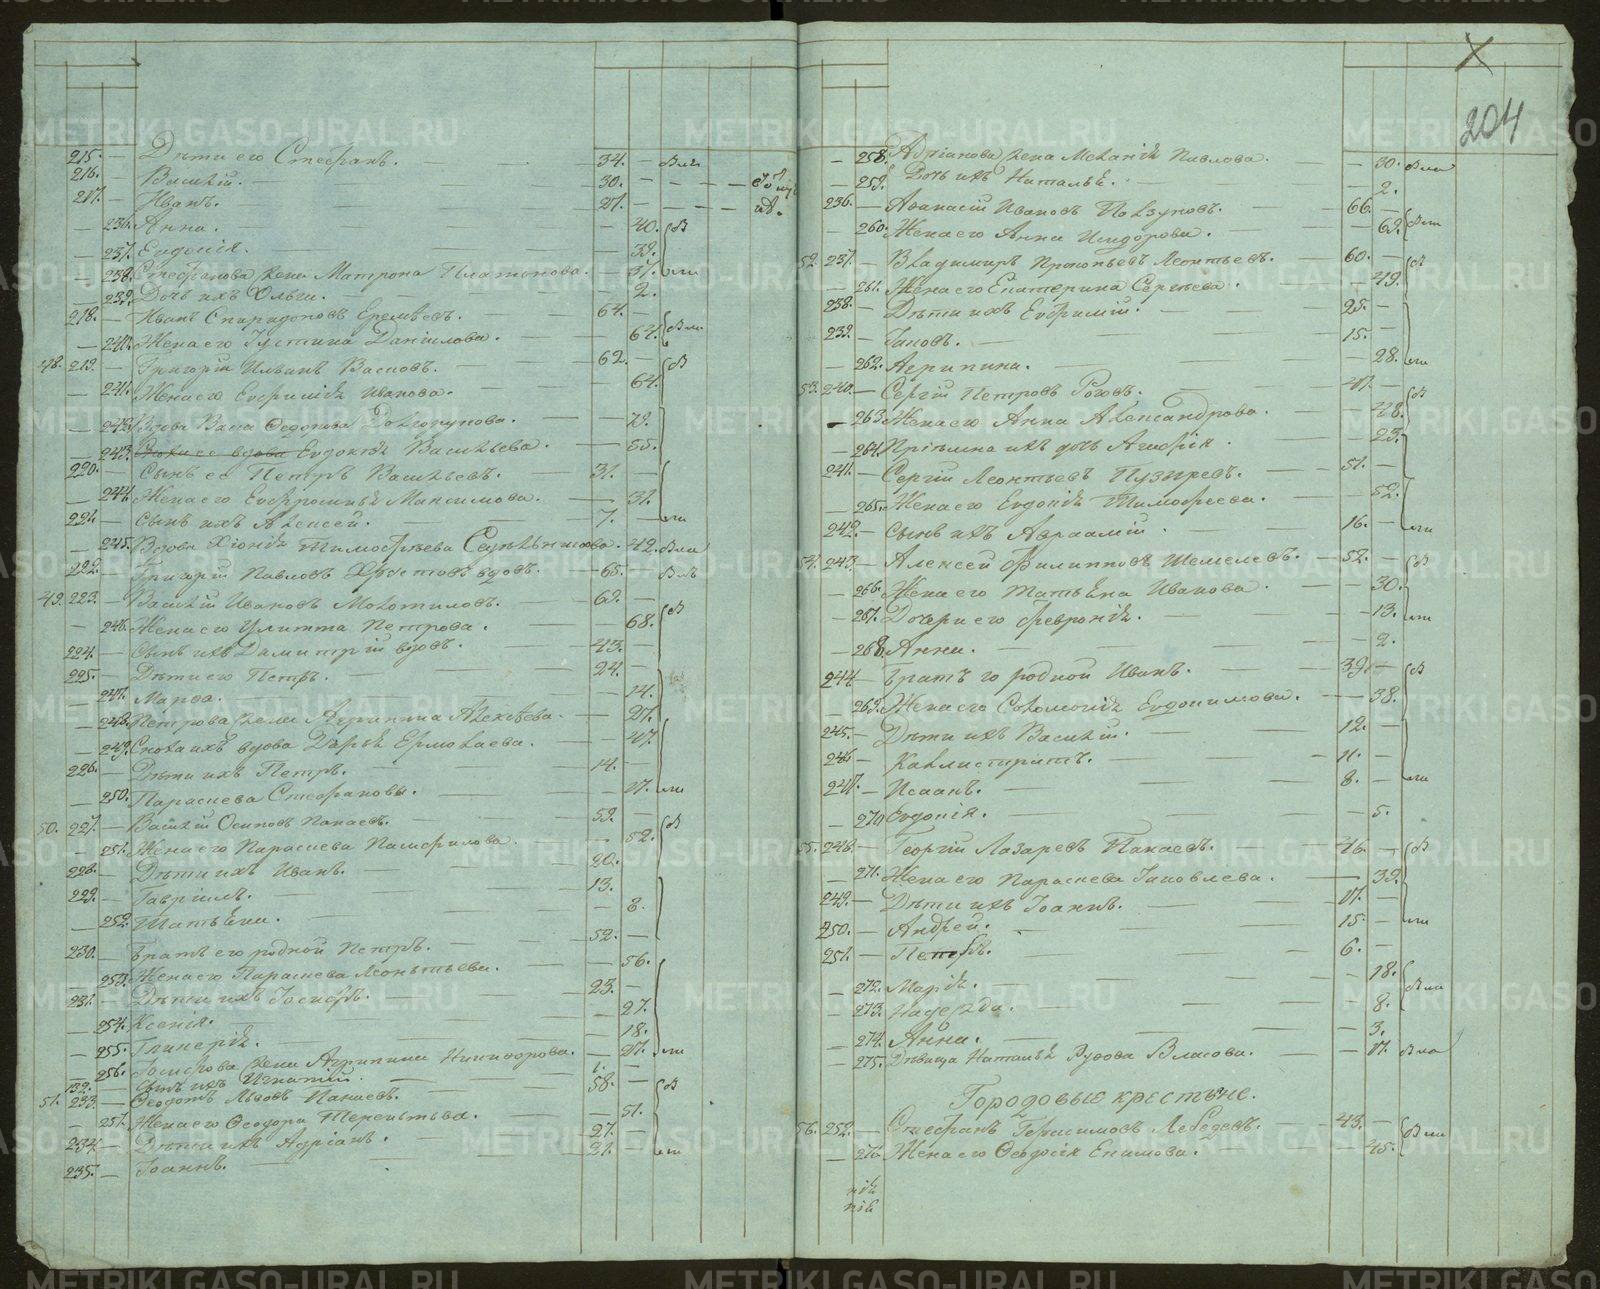 204
215. — Дѣти его Стефанъ. 34. — Были
216. — Василій. 30. —
217. — Иванъ. 27. —
— 236. Анна. — 40.
— 237. Евдокія. — 39.
— 238. Стефанова жена Матрона Платонова. — 37.
— 239. Дочь ихъ Ольга. — 2.
218. — Иванъ Спиридоновъ Еремѣевъ. 64. —
— 240. Жена его Іустина Даніилова. — 64. Были
48. 219. — Григорій Ильинъ 62. —
— 241. Жена его Евфимія Иванова. — 64.
— 242. Вдова Васса Федорова Долгорукова. — 72.
— 243. Евдокія Васильева — 55.
220. — Сынъ ее Петръ Васильевъ. 31. —
— 244. Жена его Евфросинья Максимова. — 31.
221. — Сынъ ихъ Алексей. 7. —
— 245. Вдова Хіонія Тимофѣева — 42. Были
222. — Григорій Павловъ вдовъ. 65. Былъ
49. 223. — Василій Ивановъ Молотиловъ. 69. —
— 246. Жена его Улитта Петрова. — 68.
224. — Сынъ ихъ Димитрій вдовъ. 43. —
225. — Дѣти его Петръ. 24. —
— 247. Марѳа. — 14.
— 248. Петрова жена Агрипина Алексѣева. — 27.
— 249. Сноха ихъ вдова Дарья Ермолаева. — 47.
226. — Дѣти ихъ Петръ. 14. —
— 250. Параскева Стефанова. — 27.
50. 227. — Василій Осиповъ Панаевъ. 59. —
— 251. Жена его Параскева Памфилова. — 52.
228. — Дѣти ихъ Иванъ. 20.
229. — Гавріилъ. 13.
— 252. Татьяна. — 8.
230. — Братъ его родной Петръ. 52. —
— 253. Жена его Параскева Леонтьева. — 56.
231. — Дѣти ихъ Іосифъ. 23. —
— 254. Ксенія. — 27.
— 255. Гликерія. — 18.
— 256. Іосифова жена Агрипина Никифорова. — 27.
132. — Сынъ ихъ Игнатій. 1. —
51. 233. — Ѳеодотъ Львовъ Панаевъ. 58. —
— 257. Жена его Ѳеодора Терентьева. — 51.
234. — Дѣти ихъ Адріанъ. 27. —
235. — Іоаннъ. 21. —
— 258. Адріанова жена Меланія Павлова. — 30. Были
— 259. Дочь ихъ Наталья. — 2.
236. — Аѳанасій Ивановъ Ползуновъ. 66. —
— 260. Жена его Анна Исидорова. — 69. Были
52. 237. — Владимиръ Прокопьевъ Леонтьевъ. 60. —
— 261. Жена его Екатерина Сергѣева. — 49.
238. — Дѣти ихъ Евфимій. 25. —
239. — Іаковъ. 15. —
— 262. Агрипина. — 28.
53. 240. — Сергій Петровъ Роговъ. 47. —
— 263. Жена его Анна Александрова. — 48.
— 264. Пріемна ихъ дочь Агафія — 23.
241. — Сергій Леонтьевъ Пузыревъ. 51. —
— 265. Жена его Евдокія Тимофеева. — 52.
242. — Сынъ ихъ Авраамій. 16. —
54. 243. — Алексей Филипповъ Шемелевъ. 52. —
— 266. Жена его Татьяна Иванова. — 30.
— 267. Дочери его Февронія. — 13.
— 268. Анна. — 2.
244. — Братъ его родной Иванъ. 39. —
— 269. Жена его Соломонія Евдокимова. — 38.
245. — Дѣти ихъ Василій. 12. —
246. — Каллистратъ. 11. —
247. — Исаакъ. 8. —
— 270. Евдокія. — 5.
55. 248. — Георгій Лазаревъ Панаевъ. 46. —
— 271. Жена его Параскева Іаковлева. — 39.
249. — Дѣти ихъ Іоаннъ. 17. —
250. — Андрей. 15. —
251. — Петръ. 6. —
— 272. Марія. — 18.
— 273. Надежда. — 8. Были
— 274. Анна. — 3.
— 275. Дѣвица Наталья Власова. — 17. Была
Городовые крестьяне.
56. 252. — Стефанъ Герасимовъ Лебедевъ. 43. —
— 276. Жена его Ѳеодосія Екимова. — 45. Были